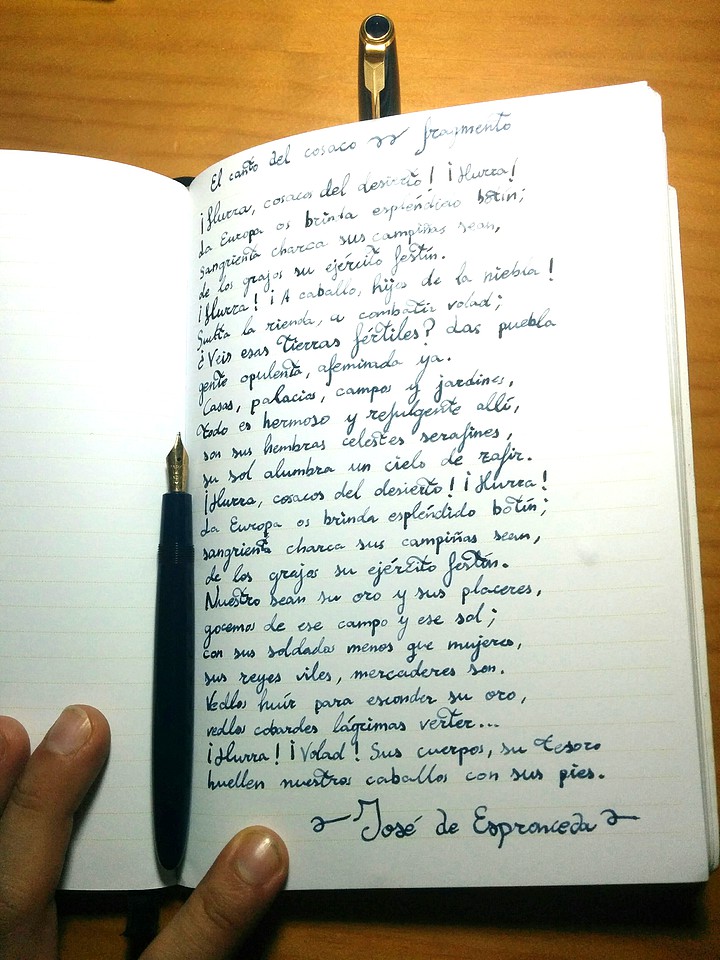 El canto del cosaco ~ fragmento
¡Hurra, cosacos del desierto! ¡Hurra!
La Europa os brinda espléndido botín;
sangrienta charca sus campiñas sean,
de los grajos su ejército festín.
¡Hurra! ¡A caballo, hijos de la niebla!
Suelta la rienda, a combatir volad;
¿Veis esas tierras fértiles? Las puebla
gente opulenta, afeminada ya.
Casas, palacios, campos y jardines,
todo es hermoso y refulgente allí,
son sus hembras celestes serafines,
su sol alumbra un cielo de zafir.
¡Hurra, cosacos del desierto! ¡Hurra!
La Europa os brinda espléndido botín;
sangrienta charca sus campiñas sean,
de los grajos su ejército festín.
Nuestro sean su oro y sus placeres,
gocemos de ese campo y ese sol;
con sus soldados menos que mujeres,
sus reyes viles, mercaderes son.
Vedlos huír para esconder su oro,
vedlos cobardes lágrimas verter...
¡Hurra! ¡Volad! Sus cuerpos, su tesoro
huellen nuestros caballos con sus pies.
~ José de Espronceda ~